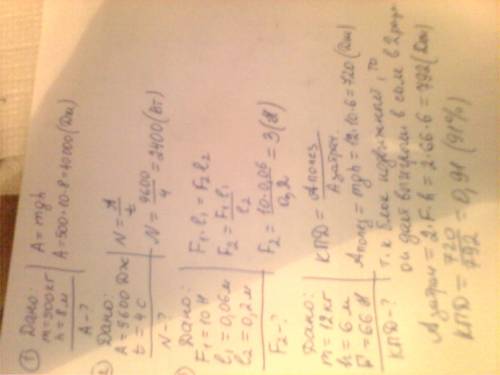 ① Дано:
m=500кг
h=8м
A-?
A=mgh
A=500·10·8=40000(Дж)
2 Дано:
A=9600Дж
t=4с
N-?
N=A/t
N=9600/4=2400(Вт)
Дано:
F₁=10Н
l₁=0,06м
l₂=0,2м
F₂-?
F₁·l₁=F₂l₂
F₂=F₁l₁/l₂
F₂=10·0,06/0,2=3(Н)
Дано:
m=12кг
h=6м
F=66Н
КПД-?
КПД=Aполез/Aзатрач
Aполез=mgh=12·10·6=720(Дж)
т.к блок подвижный, то
он даёт выигрыш в силе в 2 раза
Aзатрач=2·F·h=2·66·6=792(Дж)
КПД=720/792=0,91(91%)